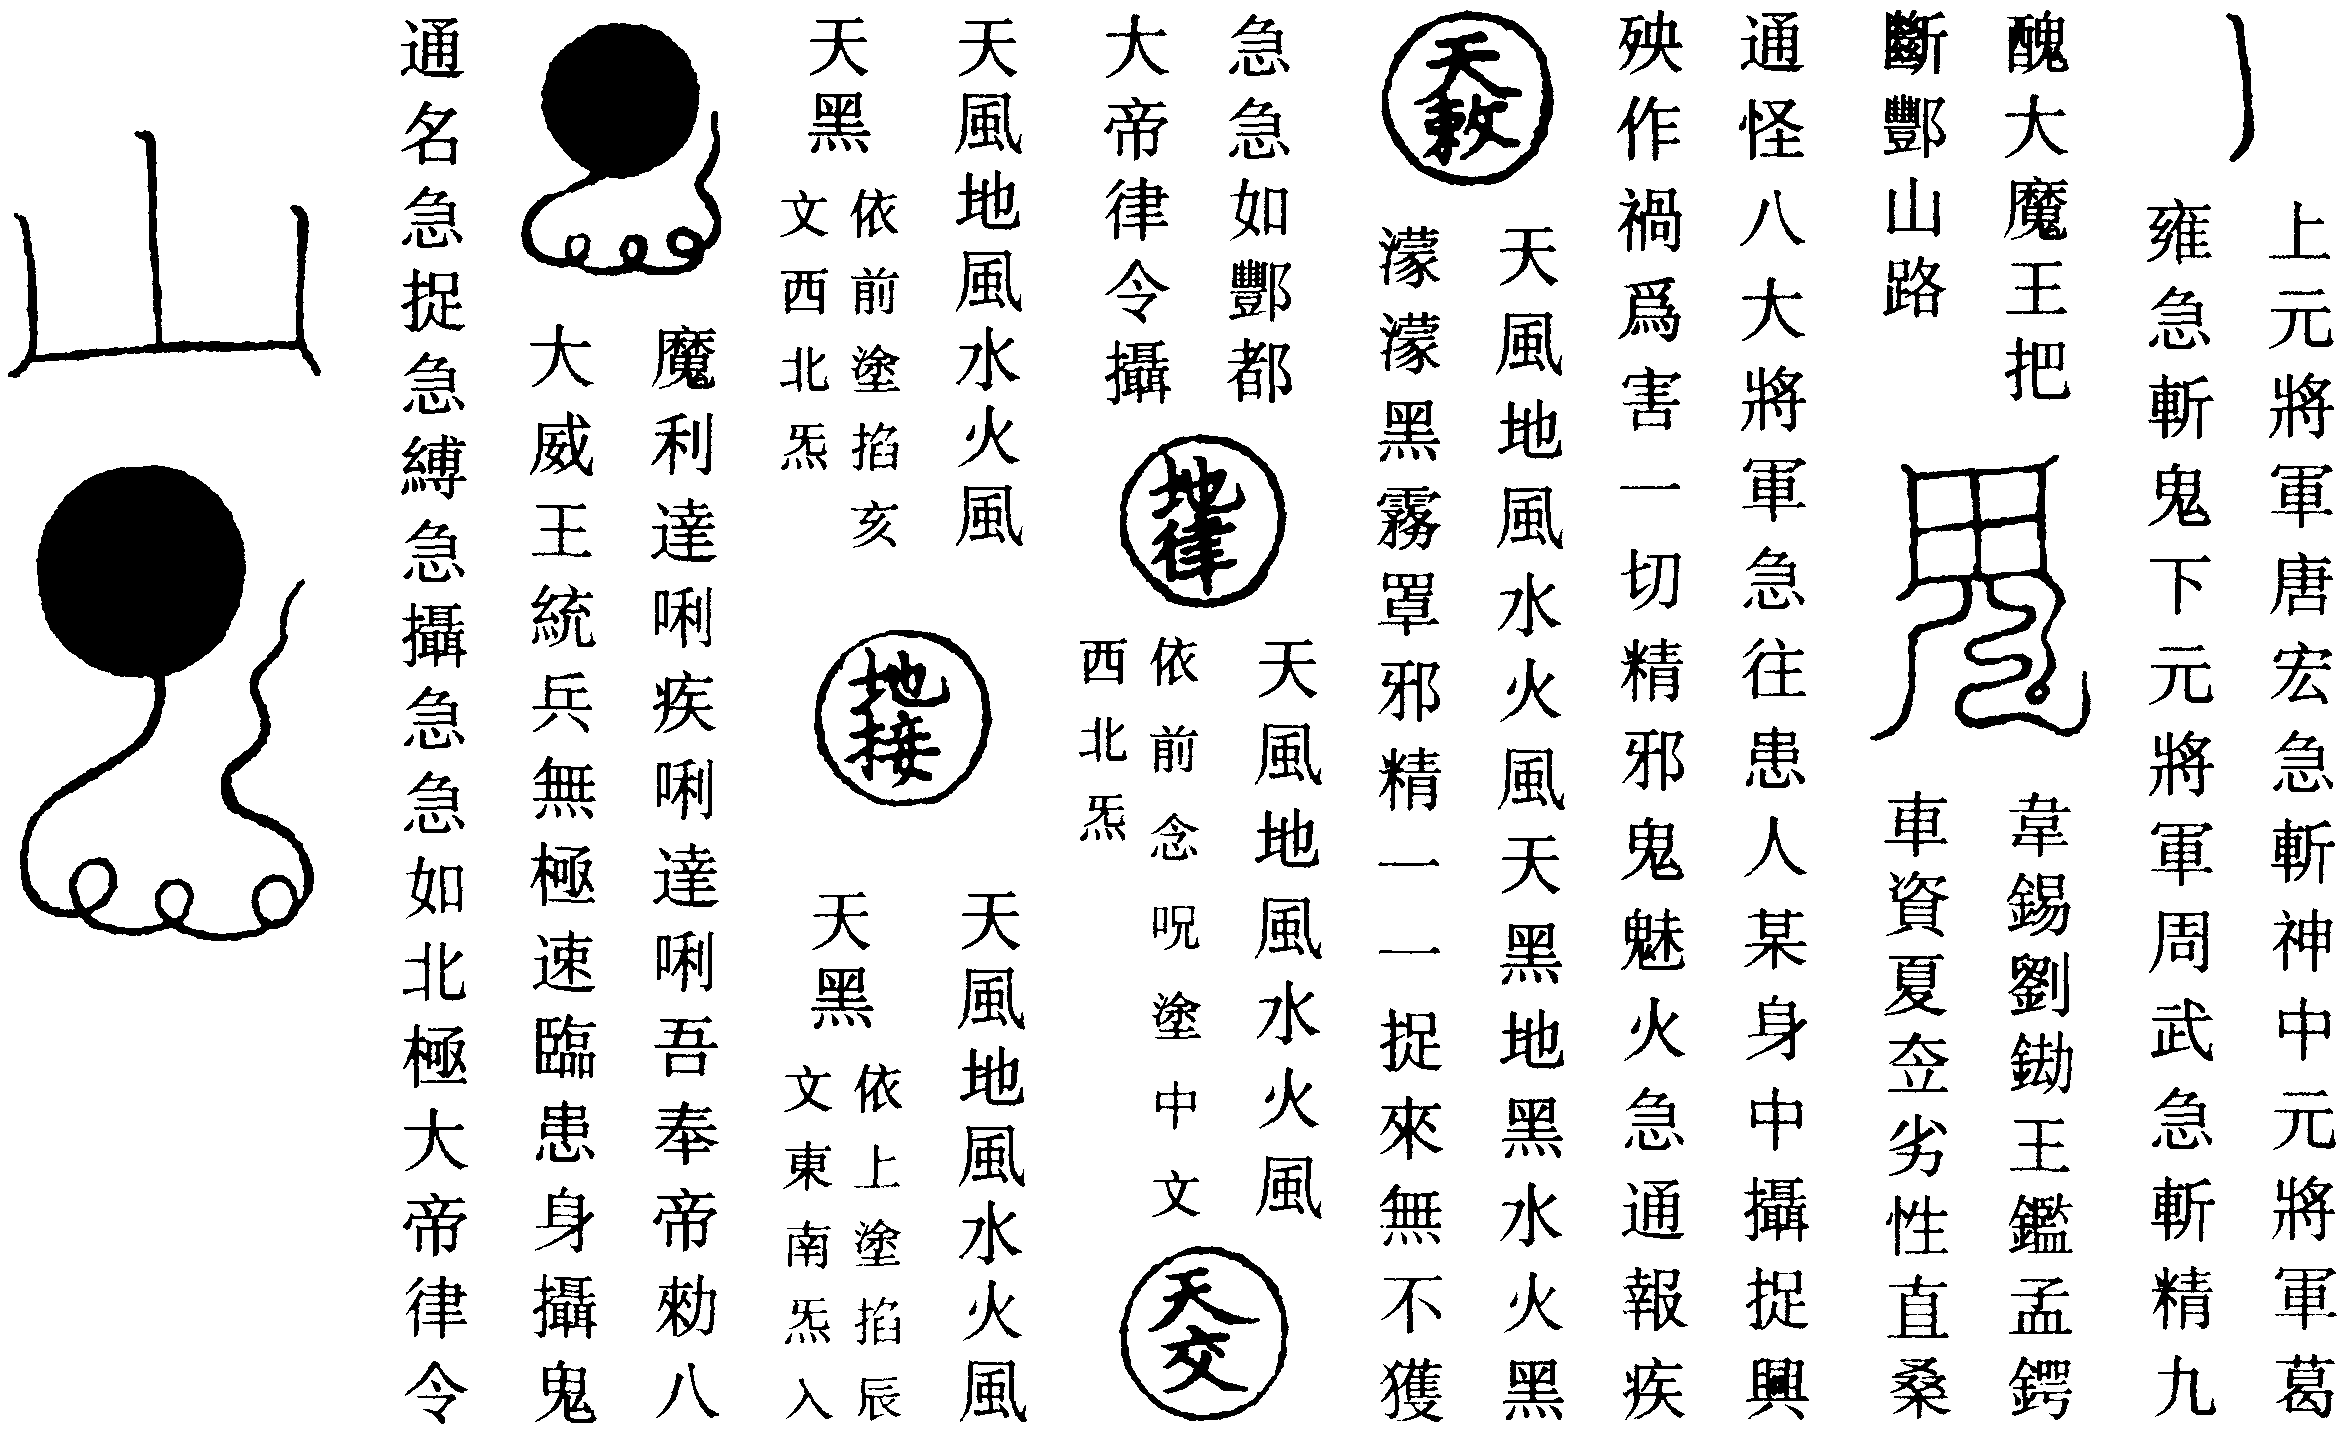 上元將軍唐宏急斬神中元將軍葛
雍急斬鬼下元將軍周武急斬精九
醜大魔王把
斷酆山路
韋錫劉鋤王鑑孟鍔
車資夏㚏劣性直桑
通怪八大將軍急往患人某身中攝捉興
殃作禍爲害一切精邪鬼魅火急通報疾
天敕
天風地風水火風天黑地黑水火黑
濛濛黑霧罩邪精一一捉來無不獲
急急如酆都
大帝律令攝
地律
天風地風水火風
依前念呪塗中文
西北炁
天交
天風地風水火風
天黑
依前塗掐亥
文西北炁
地接
天風地風水火風
天黑
依上塗掐辰
文東南炁入
魔利達唎疾唎達唎吾奉帝勑八
大威王統兵無極速臨患身攝鬼
通名急捉急縛急攝急急如北極大帝律令
山